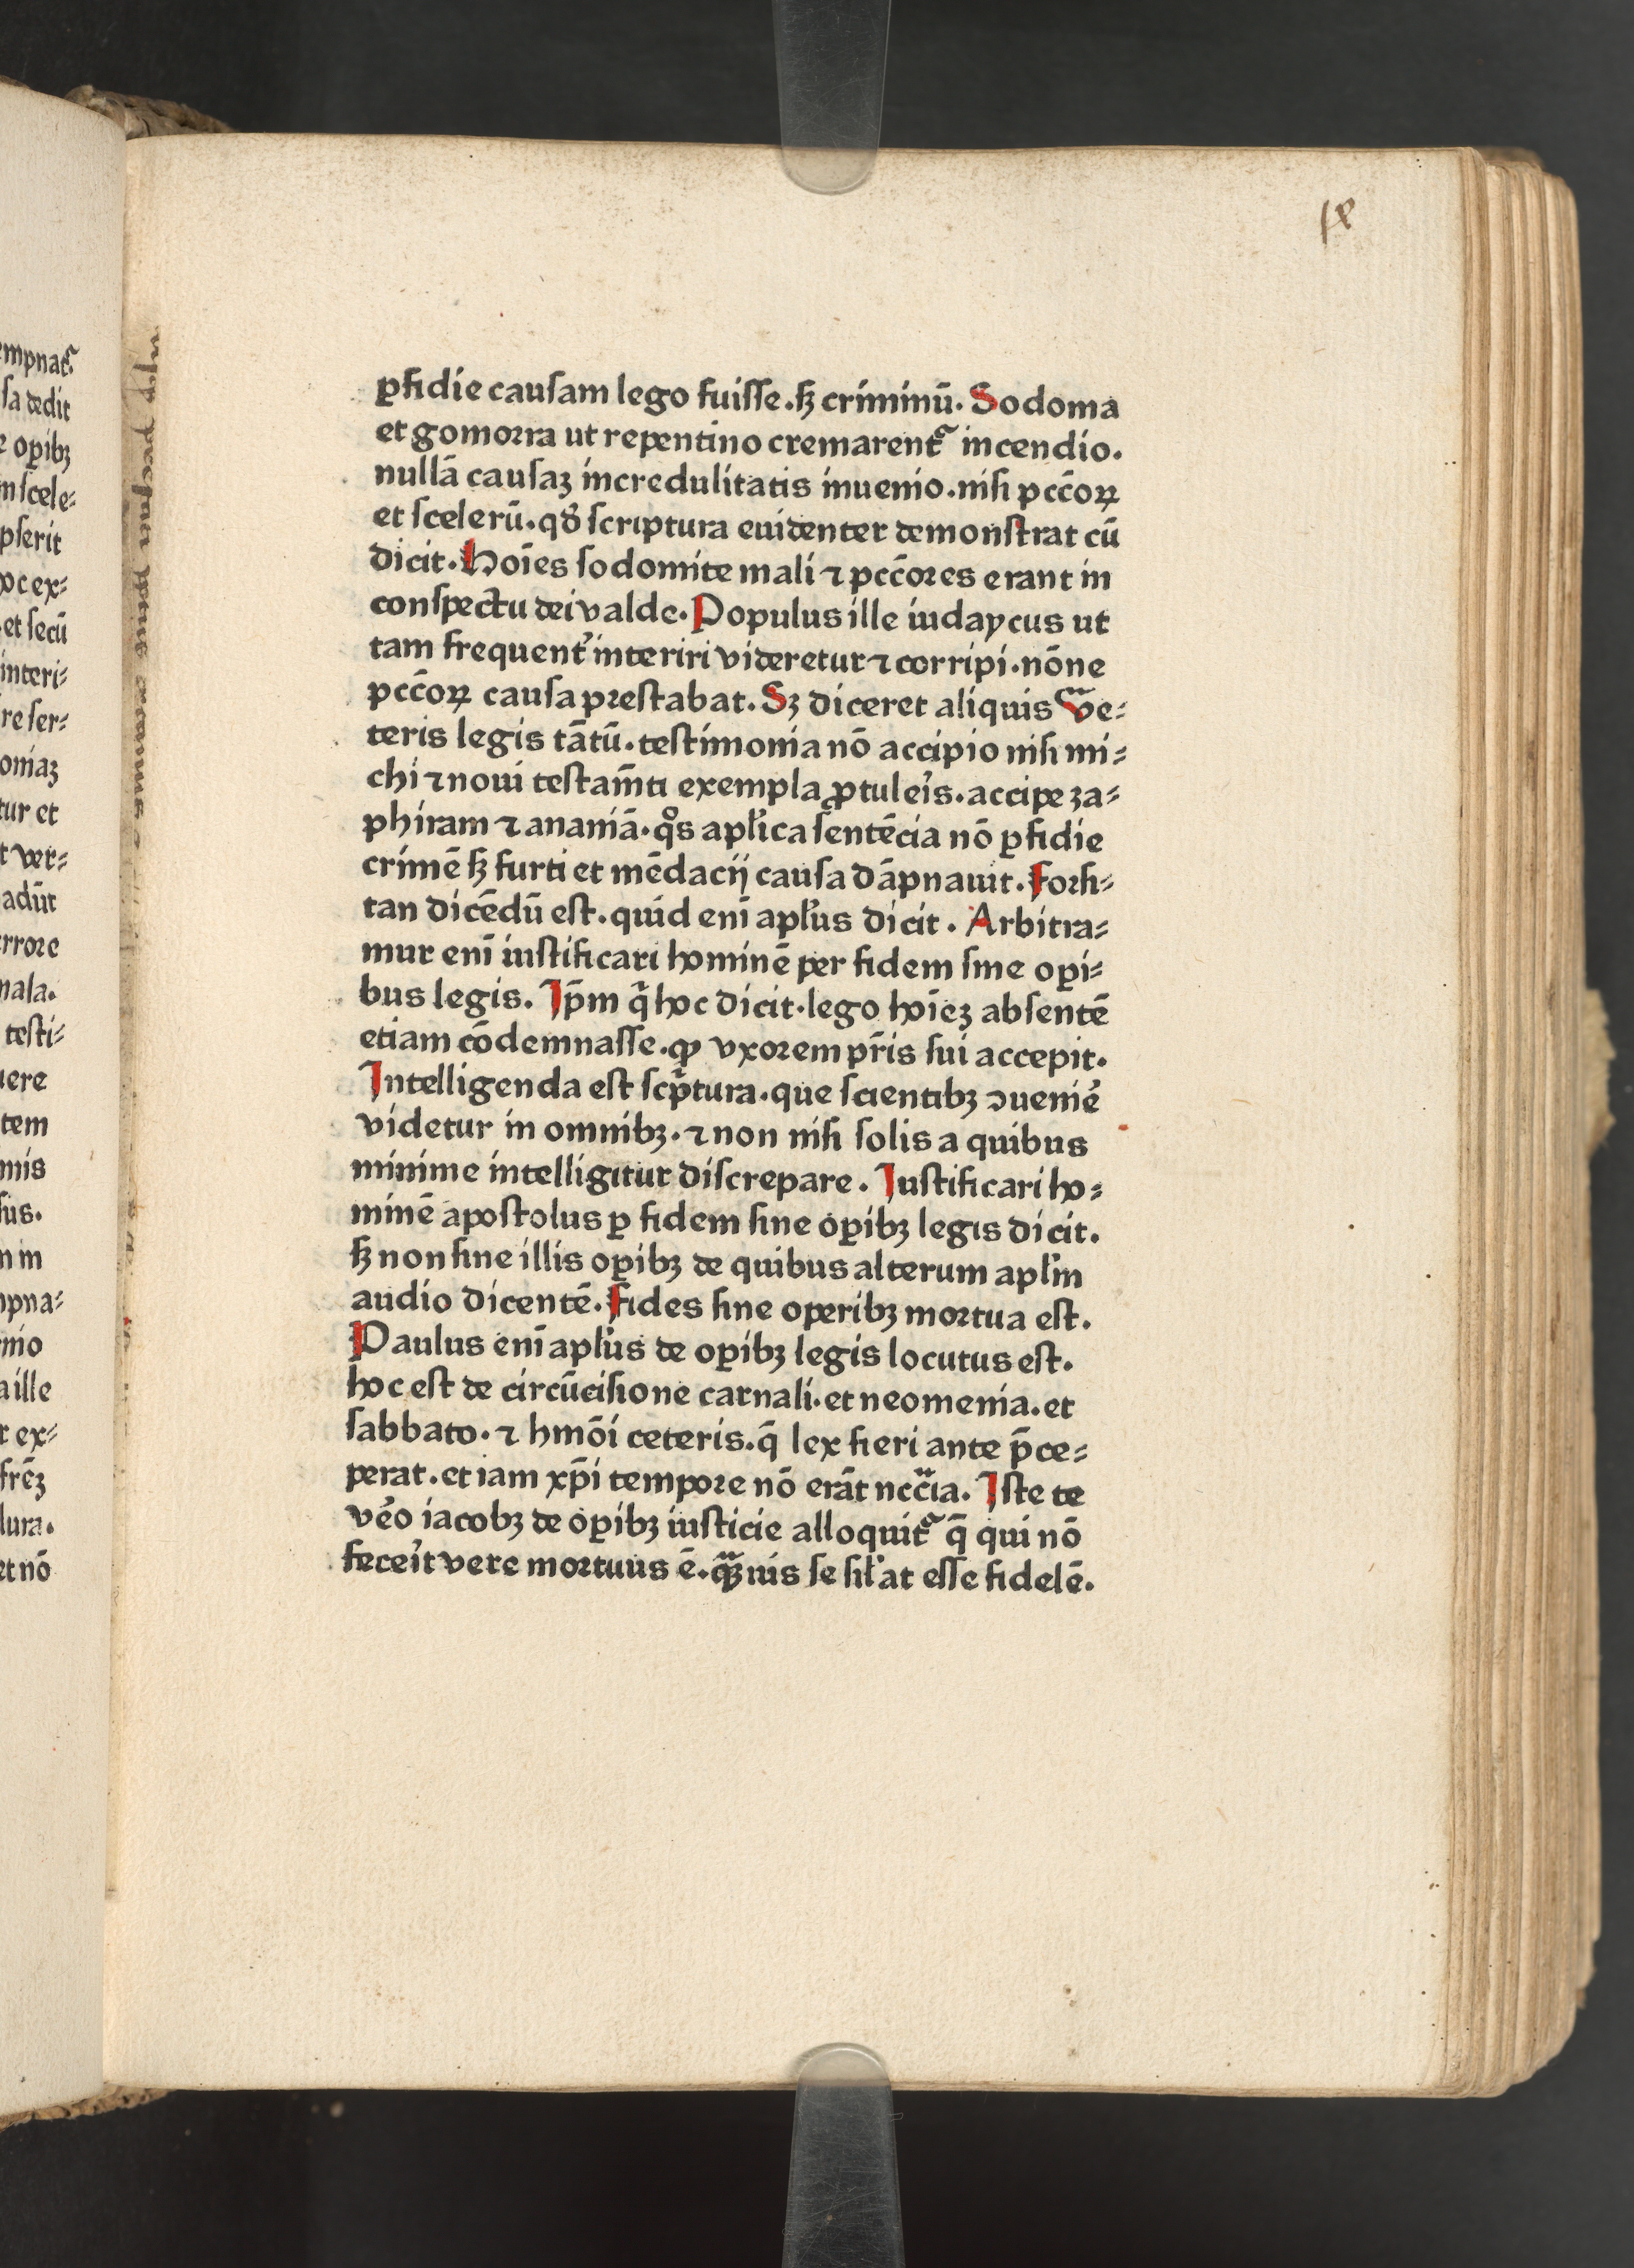 ꝑfidie causam lego fuiſſe.ſꝫ criminū. Sodoma
et gomorra ut repentino cremarentᷣ incendio.
nullā cauſaꝫ incredulitatis inuenio.niſi pcc̄oꝝ
et ſcelerū.qđ ſcriptura euidenter demonſtrat cū
dicit. Hoīes ſodomite mali ⁊ pcc̄ores erant in
conſpectu dei valde. Populus ille iudaycus ut
tam frequent᾽ interiri videretur ⁊ corripi.nōne
pcc̄oꝝ cauſa preſtabat. Sꝫ diceret aliquis Ve⸗
teris legis tātū.teſtimonia nō accipio niſi mi⸗
chi ⁊ noui teſtam̄ti exempla ꝓtuleis̄.accipe za⸗
phiram ⁊ ananiā.qͦs apl̄ica ſentēcia nō ꝑfidie
crimē ſꝫ furti et mēdacij cauſa dāpnauit. Forſi⸗
tan dicēdū eſt.quid enī apl̄us dicit. Arbitra⸗
mur enī iuſtificari hominē per fidem ſine oꝑi⸗
bus legis. Ip̄m q̄ hoc dicit.lego hoīeꝫ abſentē
etiam cōdemnaſſe.ꝙ vxorem pr̄is ſui accepit.
Intelligenda eſt ſcp̄tura.que ſcientibꝫ ↄueniē
videtur in omnibꝫ.⁊ non niſi ſolis a quibus
minime intelligitur diſcrepare. Iuſtificari ho⸗
minē apoſtolus ꝑ fidem ſine oꝑibꝫ legis dicit.
ſꝫ non ſine illis oꝑibꝫ de quibus alterum apl̄m
audio dicentē. Fides ſine operibꝫ mortua eſt.
Paulus enī apl̄us de oꝑibꝫ legis locutus eſt.
hoc eſt de circūciſione carnali.et neomenia.et
ſabbato.⁊ hmōi ceteris.q̄ lex fieri ante p̄ce⸗
perat.et iam xp̄i tempore nō erāt nccīa. Iſte te
vēo iacobꝫ de oꝑibꝫ iuſticie alloquitᷣ q̄ qui nō
feceīt vere mortuus ē.qꝫuis ſe ſil̄at eſſe fidelē.